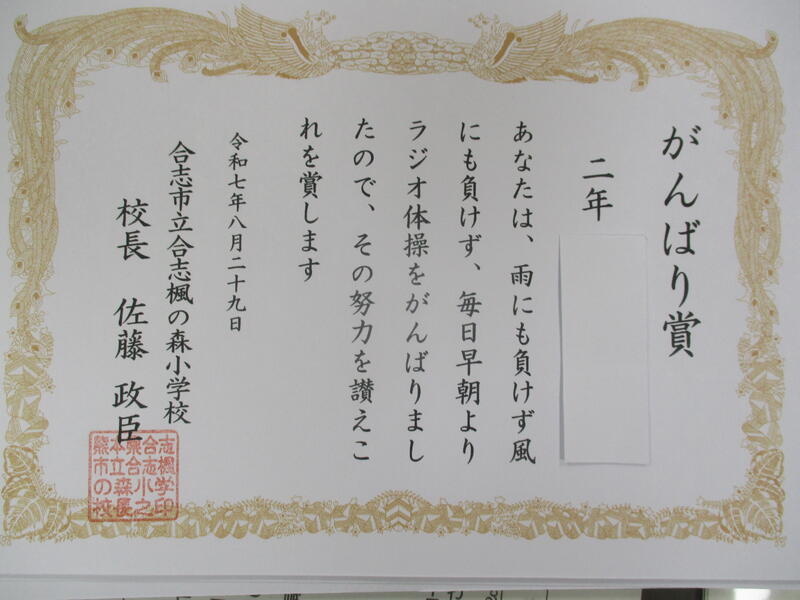 がんばり賞
二年
あなたは、雨にも負けず風
にも負けず、毎日早朝より
ラジオ体操をがんばりまし
たので、その努力を讃えこ
れを賞します
令和七年八月二十九日
合志市立合志楓の森小学校
校長 佐藤 政臣